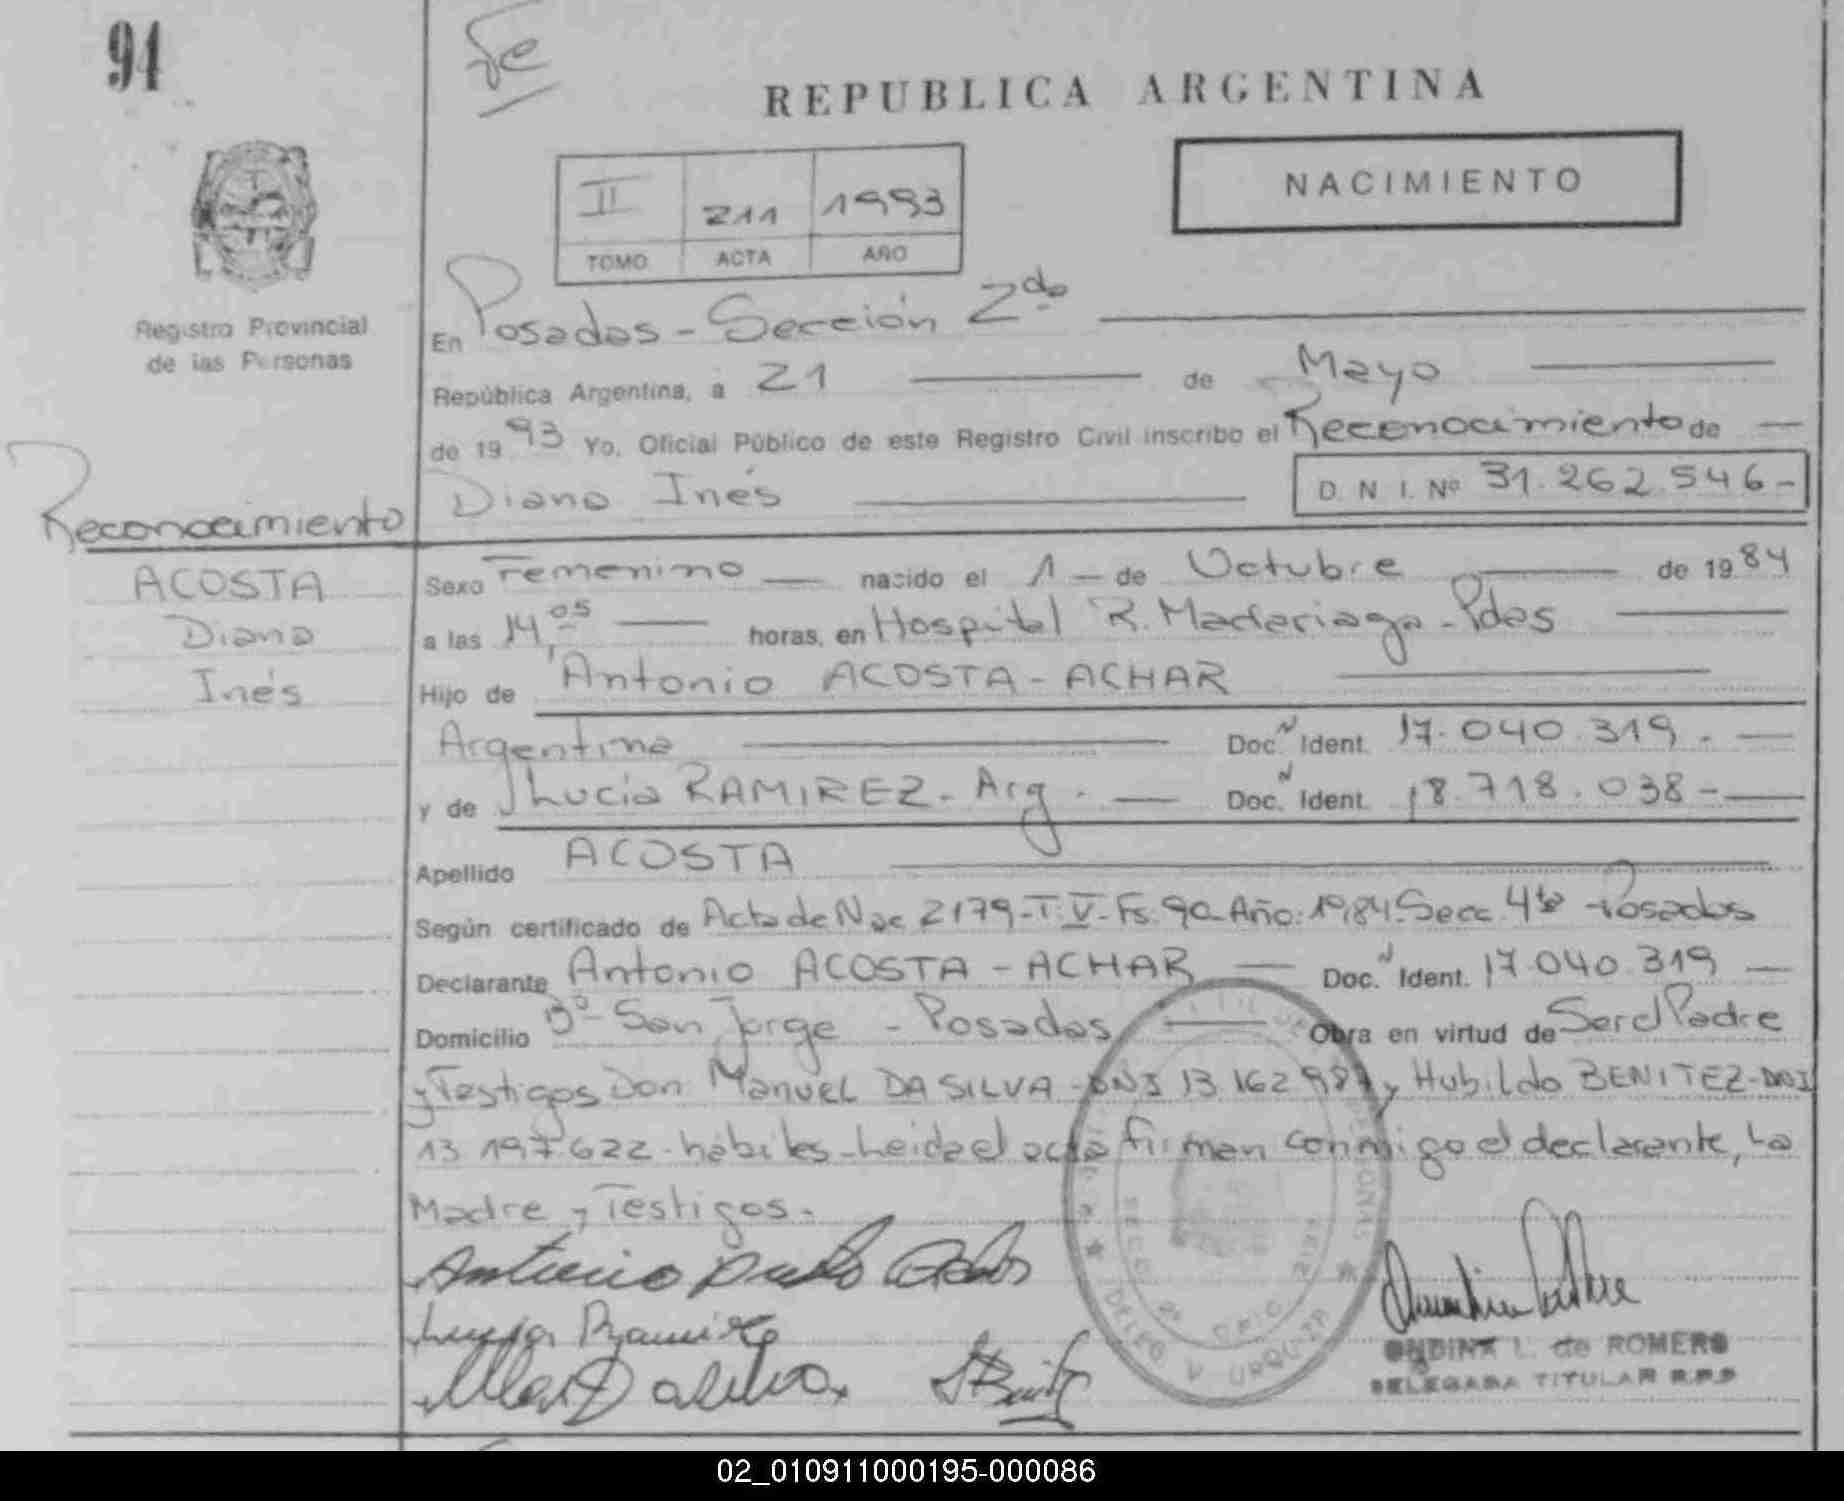 94
Fe
REPUBLICA ARGENTINA
NACIMIENTO
II 211 1993
TOMO ACTA AÑO
Registro Provincial
de las Personas
En Posadas - Sección 2da
República Argentina, a 21 de Mayo
de 1993 Yo, Oficial Público de este Registro Civil inscribo el Reconocimiento de
Diana Inés D. N. I. Nº 31.262.546-
Reconocimiento
ACOSTA
Diana
Inés
Sexo Femenino nacido el 1 de Octubre de 1984
a las 14,05 horas, en Hospital R. Madariaga - Pdas
Hijo de Antonio ACOSTA - ACHAR
Argentina Doc. N Ident. 17.040.319.-
y de Lucia RAMIREZ - Arg. Doc. N Ident. 18.718.038-
Apellido ACOSTA
Según certificado de Acta de Nac 2179-T:V-Fs:90-Año:1984-Secc. 4ta Posadas
Declarante Antonio ACOSTA - ACHAR Doc. N Ident. 17.040.319
Domicilio Bº San Jorge - Posadas Obra en virtud de Ser el Padre
y Testigos Don Manuel DA SILVA - DNI 13.162.987 y Hubildo BENITEZ - DNI
13.197.622 - hábiles - Leida el acta firman conmigo el declarante, La
Madre y Testigos.-
Antonio
Ramirez
Da silva
SECC 2ª
DELEG V URQUIZA
ONDINA L. de ROMERO
DELEGADA TITULAR R.P.P
02_010911000195-000086